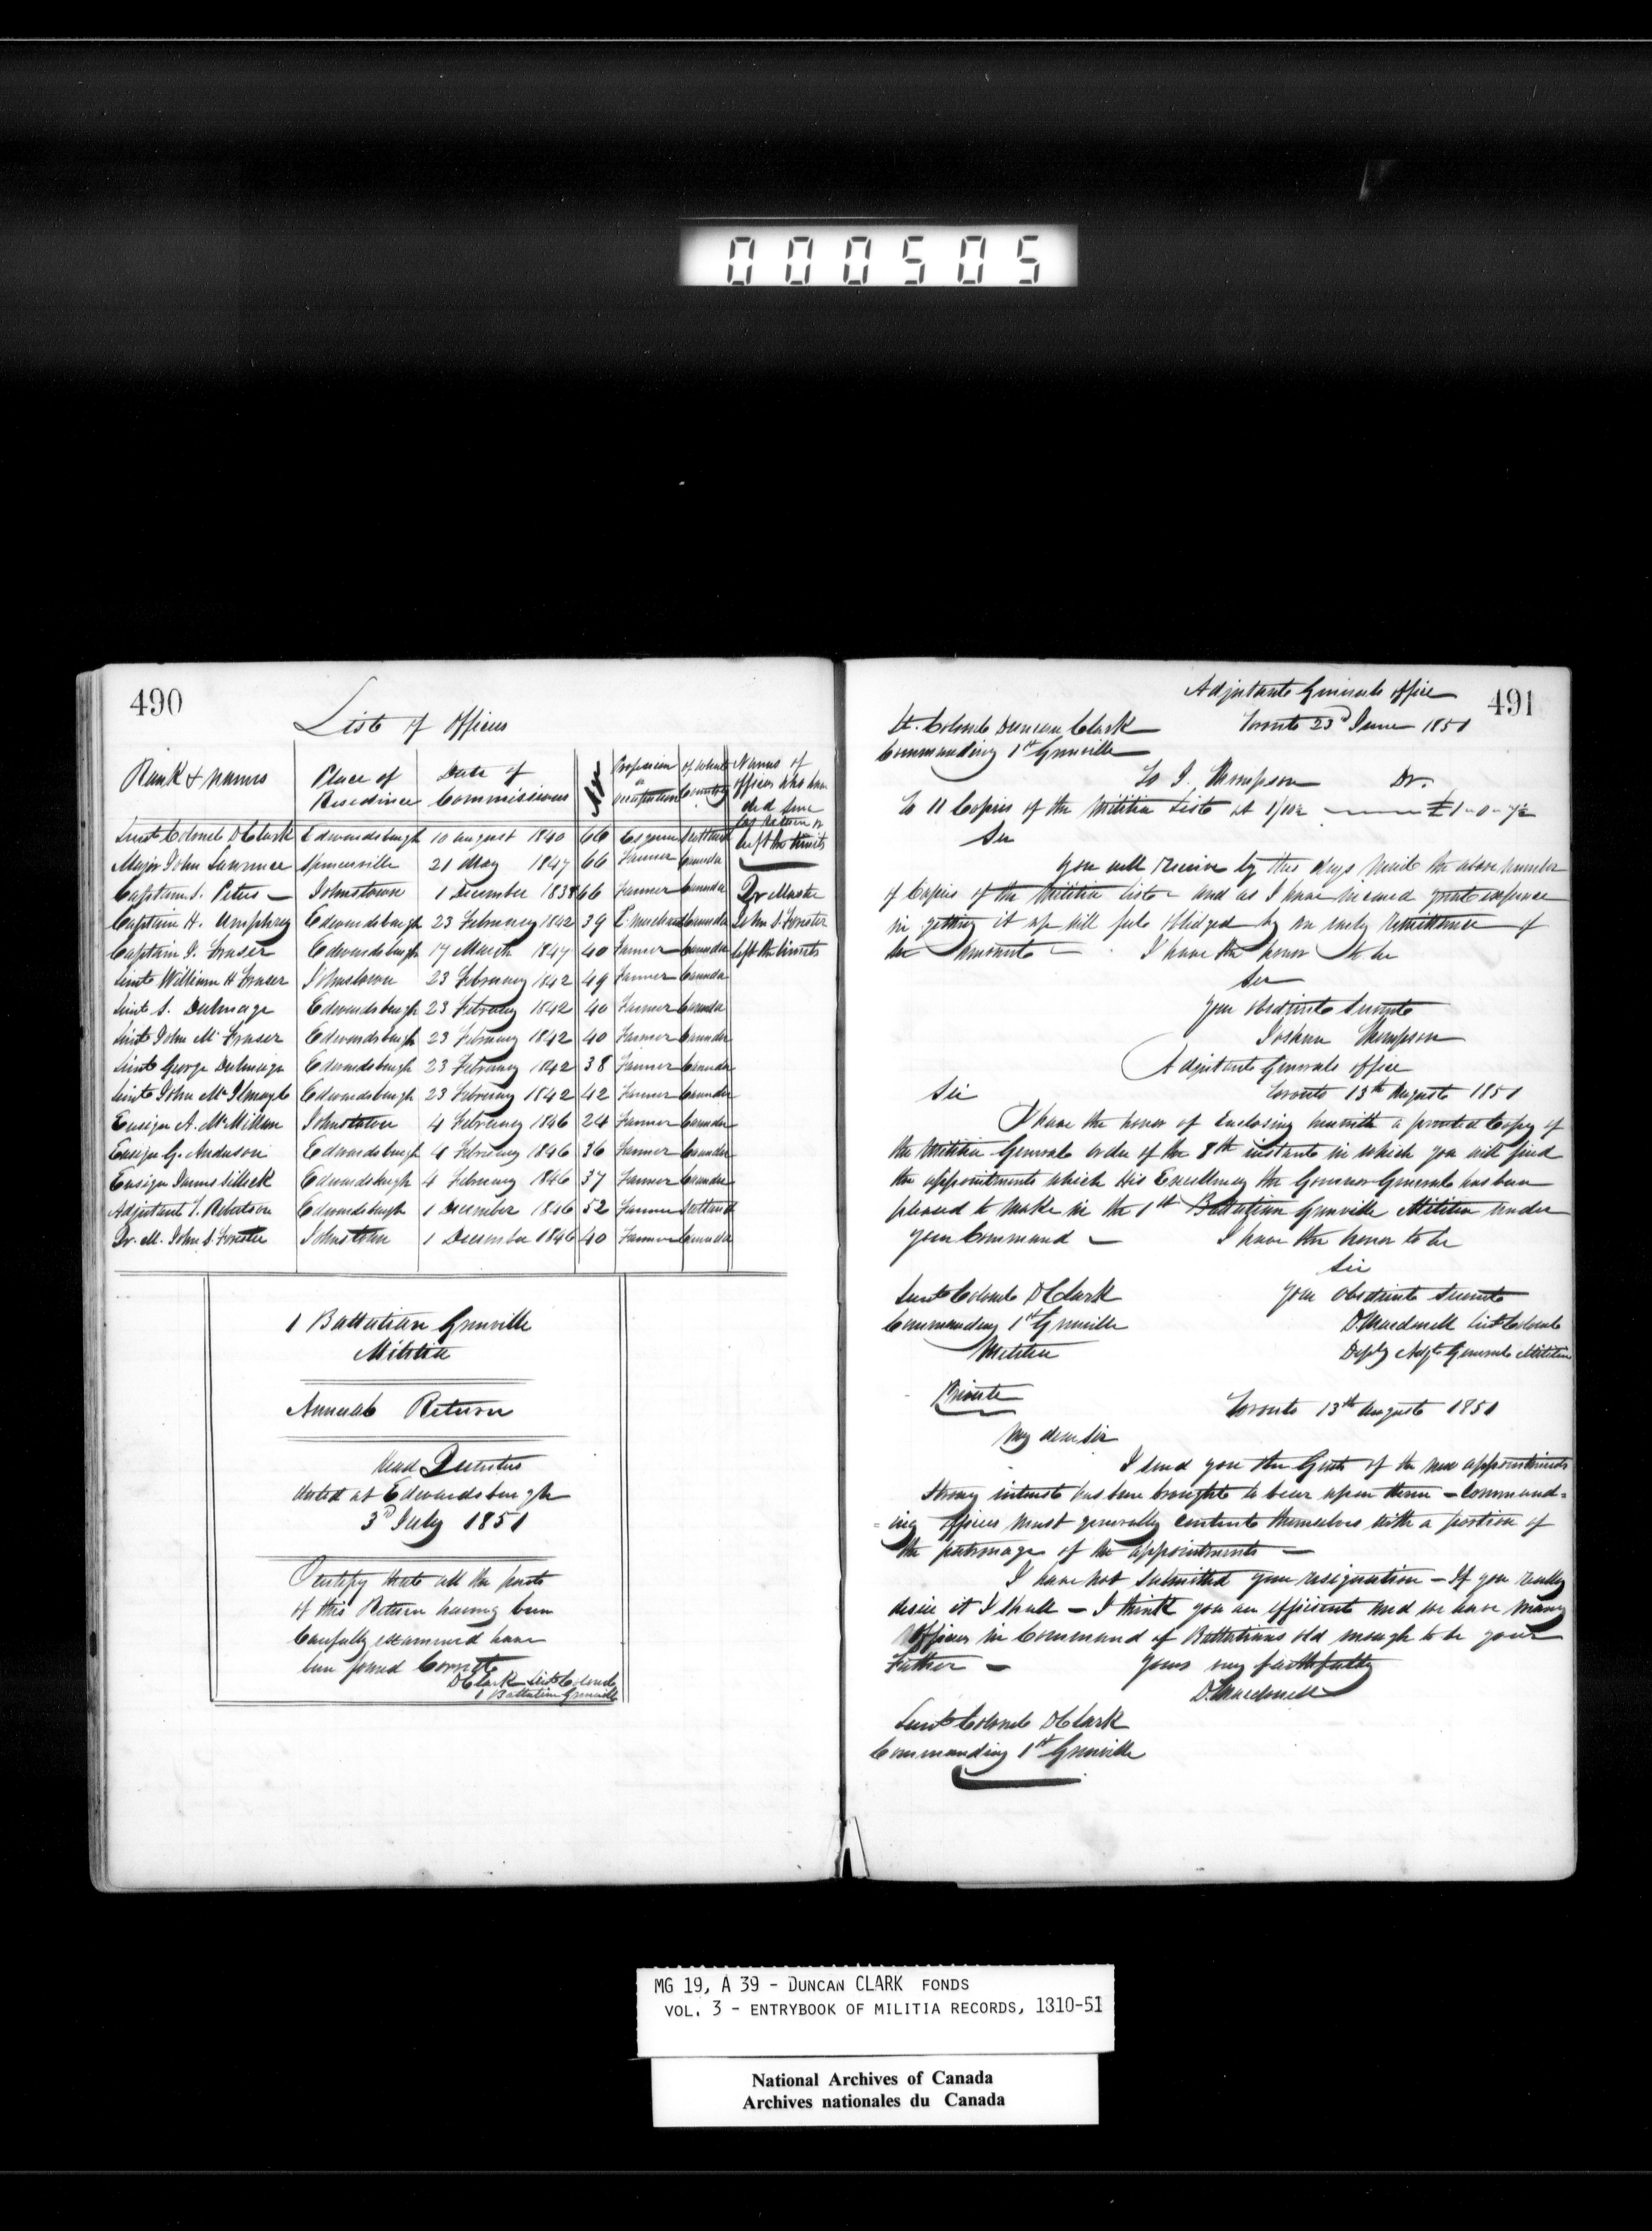 000505
490
List of Officers
Rank & names Place of Residence Date of Commissions Age Profession or occupation of what Country Names of officers who have died since last return or left the limits
Lieut Colonel D Clark Edwardsburgh 10 August 1840 66 Esquire Scotland
Major John Lawrence Spencerville 21 May 1847 66 Farmer Canada
Captain I. Peters — Johnstown 1 December 1838 66 Farmer Canada Qr Master
Captain H. Umphrey Edwardsburgh 23 February 1842 39 Canada John S. Forester
Captain I. Fraser Edwardsburgh 17 March 1847 40 Farmer Canada left the limits
Lieut William H Fraser Johnstown 23 February 1842 49 Farmer Canada
Lieut S. Dulmage Edwardsburgh 23 February 1842 40 Farmer Canada
Lieut John M. Fraser Edwardsburgh 23 February 1842 40 Farmer Canada
Lieut George Dulmage Edwardsburgh 23 February 1842 38 Farmer Canada
Lieut John Edwardsburgh 23 February 1842 42 Farmer Canada
Ensign A. McMillan Johnstown 4 February 1846 24 Farmer Canada
Ensign G. Anderson Edwardsburgh 4 February 1846 36 Farmer Canada
Ensign James Edwardsburgh 4 February 1846 37 Farmer Canada
Adjutant T. Robertson Edwardsburgh 1 December 1846 52 Farmer Scotland
Qr. M. John S. Forester Johnstown 1 December 1846 40 Farmer Canada
1 Battalion Grenville
Militia
Annual Return
Head Quarters
dated at Edwardsburgh
3d July 1851
Certify that all the parts
of this Return having been
Carefully examined have
been found Correct
D Clark Lieut Colonel
1 Battalion Grenville
491
Adjutant General office
Toronto 23d June 1851
Lt. Colonel Duncan Clark
Commanding 1st Grenville
To J. Thompson Dr.
To 11 Copies of the Militia List at 1/10½ — £1-0-7½
Sir
You will receive by this days mail the above number
of Copies of the Militia List — and as I have incurred great expense
in getting it up will feel obliged by an early remittance of
the amount — I have the honor to be
Sir
Your obedient Servant
Joshua Thompson
Adjutant Generals office
Toronto 13th August 1851
Sir
I have the honor of Enclosing herewith a printed Copy of
the Militia General order of the 8th instant in which you will find
the appointments which His Excellency the Governor General has been
pleased to make in the 1st Battalion Grenville Militia under
your Command — I have the honor to be
Sir
Your obedient Servant
D. Macdonell Lieut Colonel
Deputy Adjt General Militia
Lieut Colonel D Clark
Commanding 1st Grenville
Militia
Private
Toronto 13th August 1851
My dear Sir
I send you the of the new appointments
Strong interest has been brought to bear upon them — Command-
ing officers must generally content themselves with a portion of
the patronage of the appointments —
I have not submitted your resignation — If you really
desire it I shall — I think you are efficient and we have many
Officers in Command of Battalions old enough to be your
Father — Yours very faithfully
D. Macdonell
Lieut Colonel D Clark
Commanding 1st Grenville
MG 19, A 39 - DUNCAN CLARK FONDS
VOL. 3 - ENTRYBOOK OF MILITIA RECORDS, 1810-51
National Archives of Canada
Archives nationales du Canada